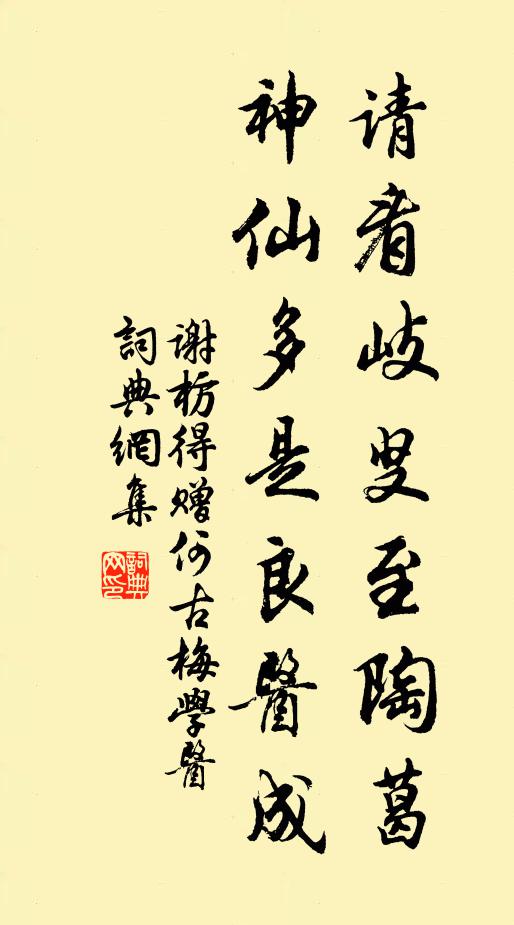 请看歧叟至陶葛
神仙多是良醫成
谢枋得赠何古梅學醫
詞典網集
詞典网印